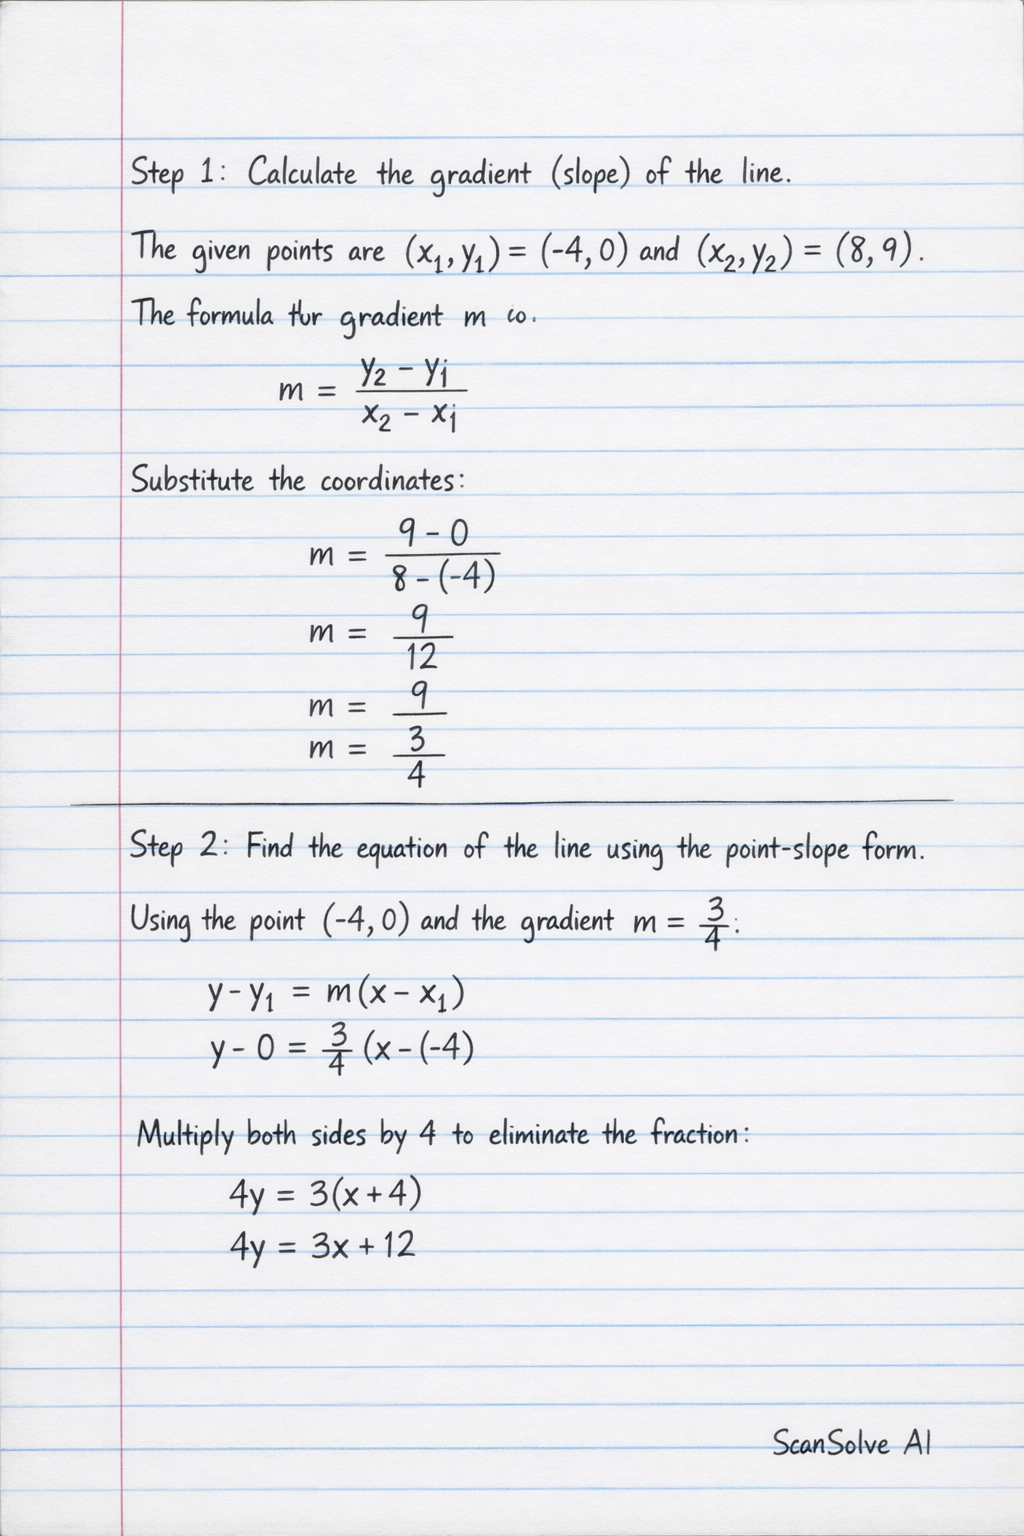 Step 1: Calculate the gradient (slope) of the line.
The given points are (x₁, y₁) = (-4, 0) and (x₂, y₂) = (8, 9).
The formula gradient m
m = (y₂ - y₁)/(x₂ - x₁)
Substitute the coordinates:
m = (9 - 0)/(8 - (-4))
m = 9/12
m = 9/
m = 3/4
Step 2: Find the equation of the line using the point-slope form.
Using the point (-4, 0) and the gradient m = 3/4:
y - y₁ = m(x - x₁)
y - 0 = 3/4 (x - (-4)
Multiply both sides by 4 to eliminate the fraction:
4y = 3(x + 4)
4y = 3x + 12
ScanSolve AI